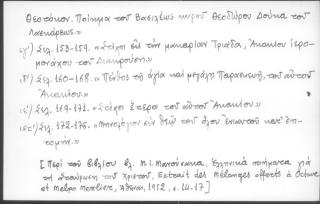 Θεοτόκον. Ποίημα τοῦ Βασιλέως κυροῦ Θεοδώρου Δούκα τοῦ
Λασκάρεως.»
ιγ') Σελ. 153-159. «Στίχοι εἰς τὴν μακαρίαν Τριάδα, Ἀκακίου ἱερο-
μονάχου τοῦ Διακρούση.»
ιδ') Σελ. 160-168. «Πένθος τῇ ἁγίᾳ καὶ μεγάλῃ Παρασκευῇ, τοῦ αὐτοῦ
Ἀκακίου.»
ιε') Σελ. 169-171. «Στίχοι ἕτεροι τοῦ αὐτοῦ Ἀκακίου.»
ιστ') Σελ. 172-176. «Μηνολόγιον σὺν Θεῷ τοῦ ὅλου ἐνιαυτοῦ κατ' ἐπι-
τομήν.»
[Περὶ τοῦ βιβλίου βλ. Μ. Ι. Μανούσακα, Ἑλληνικὰ ποιήματα γιὰ
τὴ σταύρωση τοῦ Χριστοῦ, Extrait des Mélanges offerts à Octave
et Melpo Merlier, Ἀθῆναι, 1952, σ. 14-17]